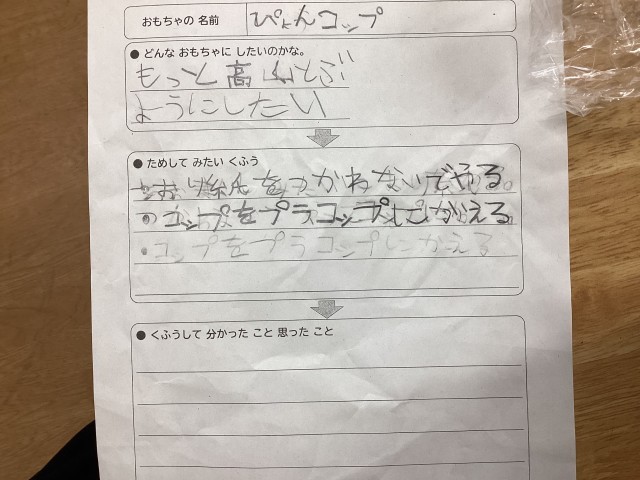 おもちゃの 名前 ぴょんコップ
● どんな おもちゃに したいのかな。
もっと高くとぶ
ようにしたい
● ためして みたい くふう
糸をつかわないでやる。
•コップをプラコップにかえる。
•コップをプラコップにかえる
● くふうして 分かった こと 思った こと